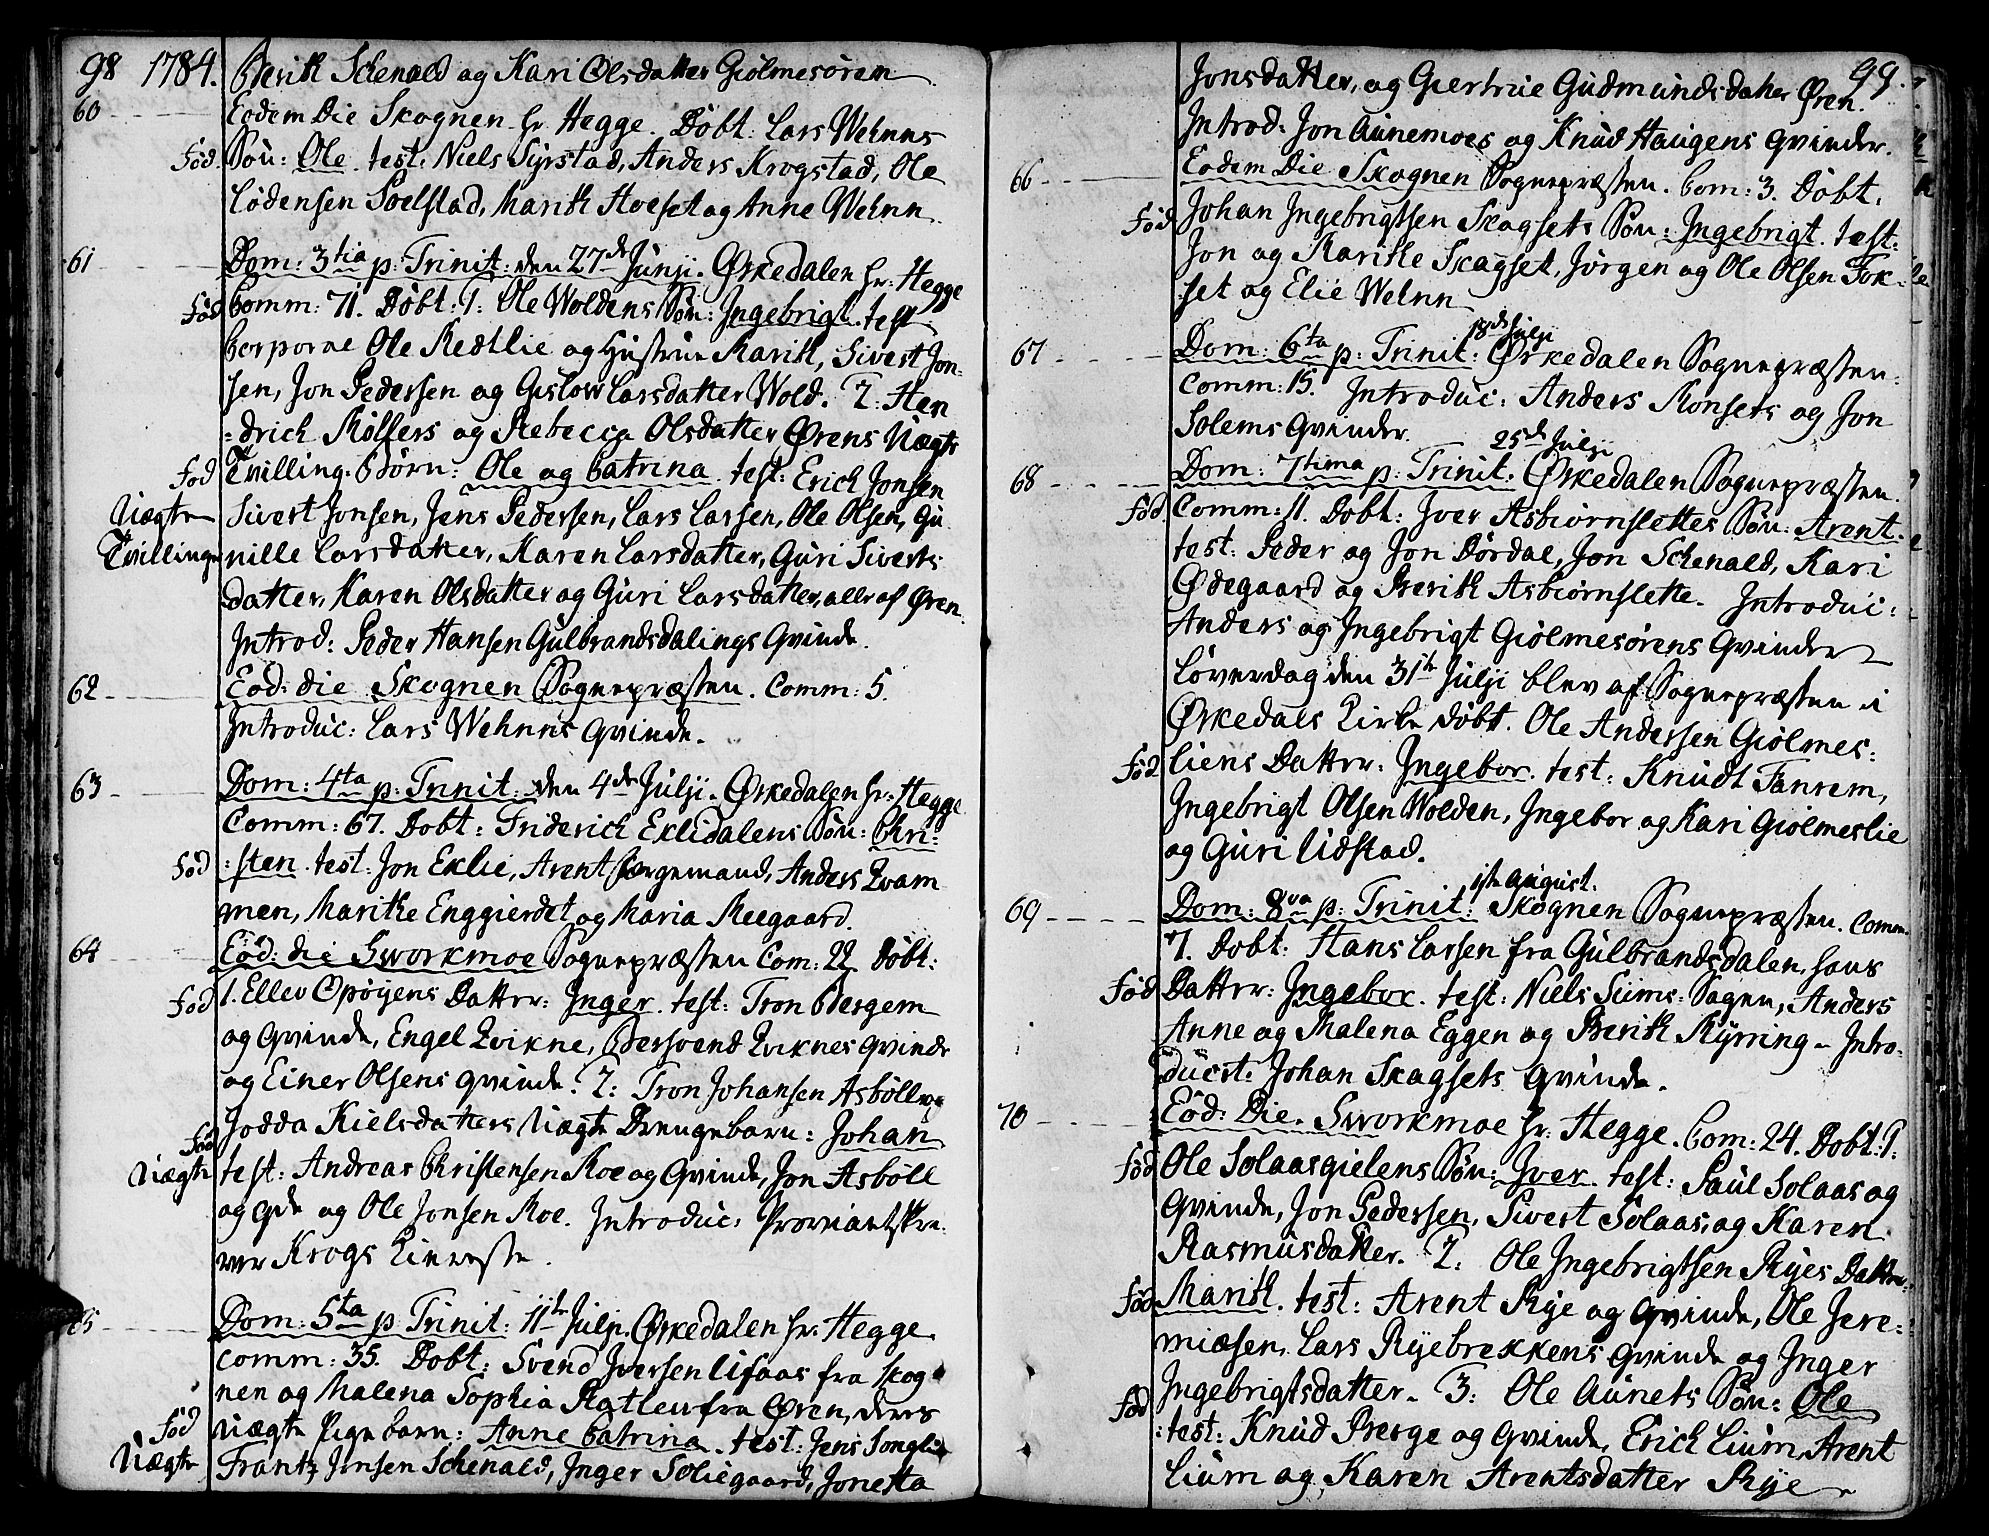 98 1784. Berith Schenald og Kari Olsdatter Giølmesøren
60 Eodem Die Skognen Hr. Hegge. Døbt: Lars Wehnns
Fød Søn: Ole. test: Niels Syrstad, Anders Krogstad, Ole
Lødensen Soelstad, Marith Hoeset og Anne Wehnn.
61 Dom: 3tia p: Trinit: den 27de Junji. Ørkedalen Hr: Hegge
Fød Comm: 71. Døbt: 1: Ole Woldens Søn: Ingebrigt. test
Corporae Ole Rædlie og Hustrue Marith, Sivert Jon-
sen, Jon Pedersen og Gislow Larsdatter Wold. 2: Hen
=drich Rolfers og Rebecca Olsdatter Ørens Uægte
Fød Tvilling. Børn: Ole og Catrina. test: Erich Jonsen
Uægte Sivert Jonsen, Jens Pedersen, Lars Larsen, Ole Olsen, Gu
Tvillinge nille Larsdatter, Karen Larsdatter, Guri Siverts
datter, Karen Olsdatter og Guri Larsdatter, alle af Øren.
Introd: Peder Hansen Gulbrandsdalings Qvinde.
62 Eod: die Skognen Sognepræsten. Comm: 5.
Introduc: Lars Wehnns Qvinde.
63 Dom: 4ta p: Trinit: den 4de Julji. Ørkedalen Hr: Hegge
Comm: 67. Døbt: Friderich Eklidalens Søn: Chri:
Fød :sten. test: Jon Eklie, Arent Borgemand, Anders Qvam
men, Marithe Enggierdet og Maria Meegaard.
64 Eod: die Sworkmoe Sognepræsten Com: 22. Døbt:
Fød 1. Ellev Opøyens Datter: Inger. test: Tron Bergem
og Qvinde, Engel Qvikne, Bersvend Qviknes Qvinde
og Einer Olsens Qvinde. 2: Tron Johansen Asbøll og
Jodda Kielsdatters Uægte Drengebarn: Johan
Fød
Uægte test: Andreas Christensen Roe og Qvinde, Jon Asbøll
og Qde og Ole Jonsen Roe. Introduc: Proviantskri-
ver Krogs Kiereste.
65 Dom: 5ta p: Trinit: 11te Julji. Ørkedalen Hr: Hegge
Comm: 35. Døbt: Svend Iversen Lifaas fra Skog
nen og Malena Sophia Rattlen fra Øren, deres
Fød Uægte Pigebarn: Anne Catrina. test: Jens Songlie
Uægte Frantz Jensen Schenald, Inger Soliegaard, Jonetta
99.
Jonsdatter, og Giertrue Gudmundsdatter Øren.
Introd: Jon Aunemoes og Knud Haugens Qvinder.
66 Eodem Die Skognen Sognepræsten. Com: 3. Døbt.
Fød Johan Ingebrigtsen Skagsets Søn: Ingebrigt. test:
Jon og Marithe Skagset, Jørgen og Ole Olsen Fok-
set og Elie Wehnn
67 Dom: 6ta p: Trinit: 18de Julji Ørkedalen Sognepræsten.
Comm: 15. Introduc: Anders Monsets og Jon
Solems Qvinder.
68 Dom: 7tima p: Trinit. 25de Julji Ørkedalen Sognepræsten.
Fød Comm: 11. Døbt: Iver Asbiørnslettes Søn: Arent.
test: Peder og Jon Dørdal, Jon Schenald, Kari
Ødegaard og Berith Asbiørnslette. Introduc:
Anders og Ingebrigt Giølmesørens Qvinder
Løverdag den 31te Julji blev af Sognepræsten i
Ørkedals Kirke døbt. Ole Andersen Giølmes:
Fød liens Datter: Ingebor. test: Knudt Fanrem,
Ingebrigt Olsen Wolden, Ingebor og Kari Giølmeslie
og Guri Udstad.
69 Dom: 8va p: Trinit: 1ste August. Skognen Sognepræsten. Comm
7. Døbt: Hans Larsen fra Gulbrandsdalen, hans
Fød Datter: Ingebor. test: Niels Siims: Sagen, Anders
Anne og Malena Eggen og Berith Ryrring. Intro:
ducst: Johan Skagsets Qvinde.
70 Eod: Die. Sworkmoe Hr: Hegge. Com: 24. Døbt: 1:
Fød Ole Solaasgielens Søn: Iver. test: Paul Solaas og
Qvinde, Jon Pedersen, Sivert Solaas, og Karen
Rasmusdatter. 2: Ole Ingebrigtsen Ryes Datter
Fød Marith. test: Arent Rye og Qvinde, Ole Jere-
miæsen, Lars Ryebrekkens Qvinde og Inger
Ingebrigtsdatter. 3: Ole Aunets Søn: Ole
Fød :test: Knud Berge og Qvinde, Erich Lium, Arent
Lium og Karen Arentsdatter Rye